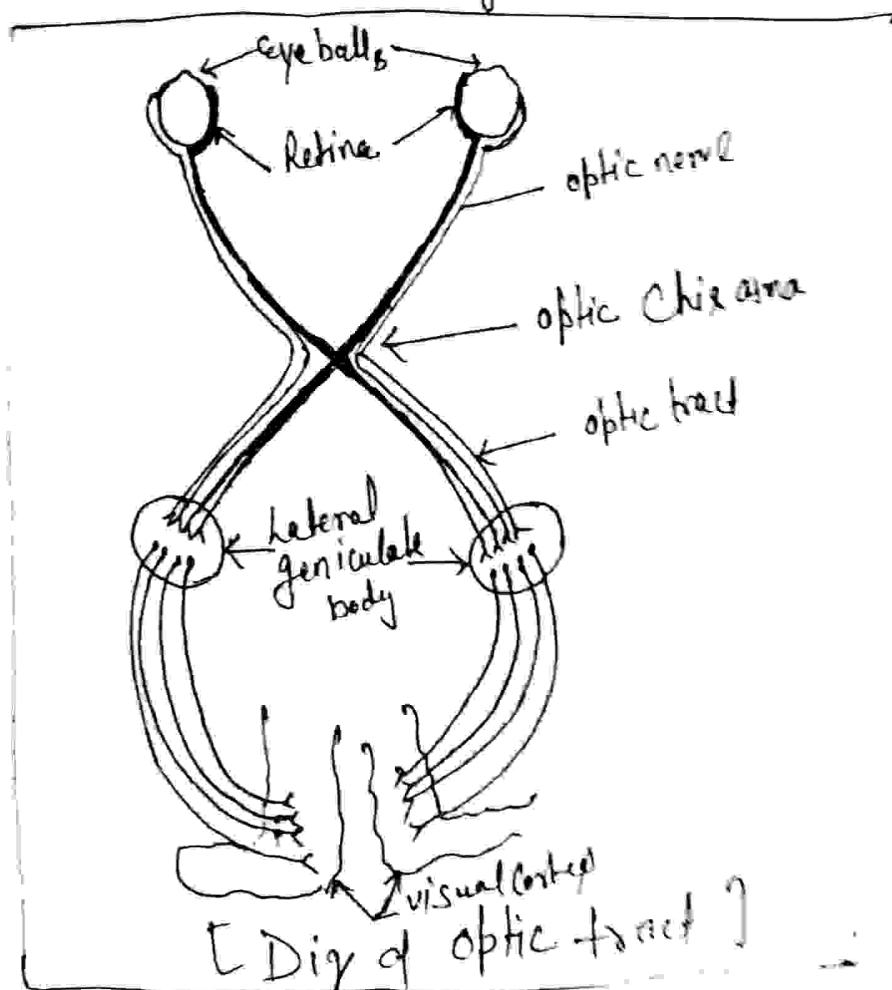 Eyeballs
Retina
optic nerve
optic Chixasma
optic tract
Lateral
geniculate
body
visual Cortex
[ Dig of optic tract ]